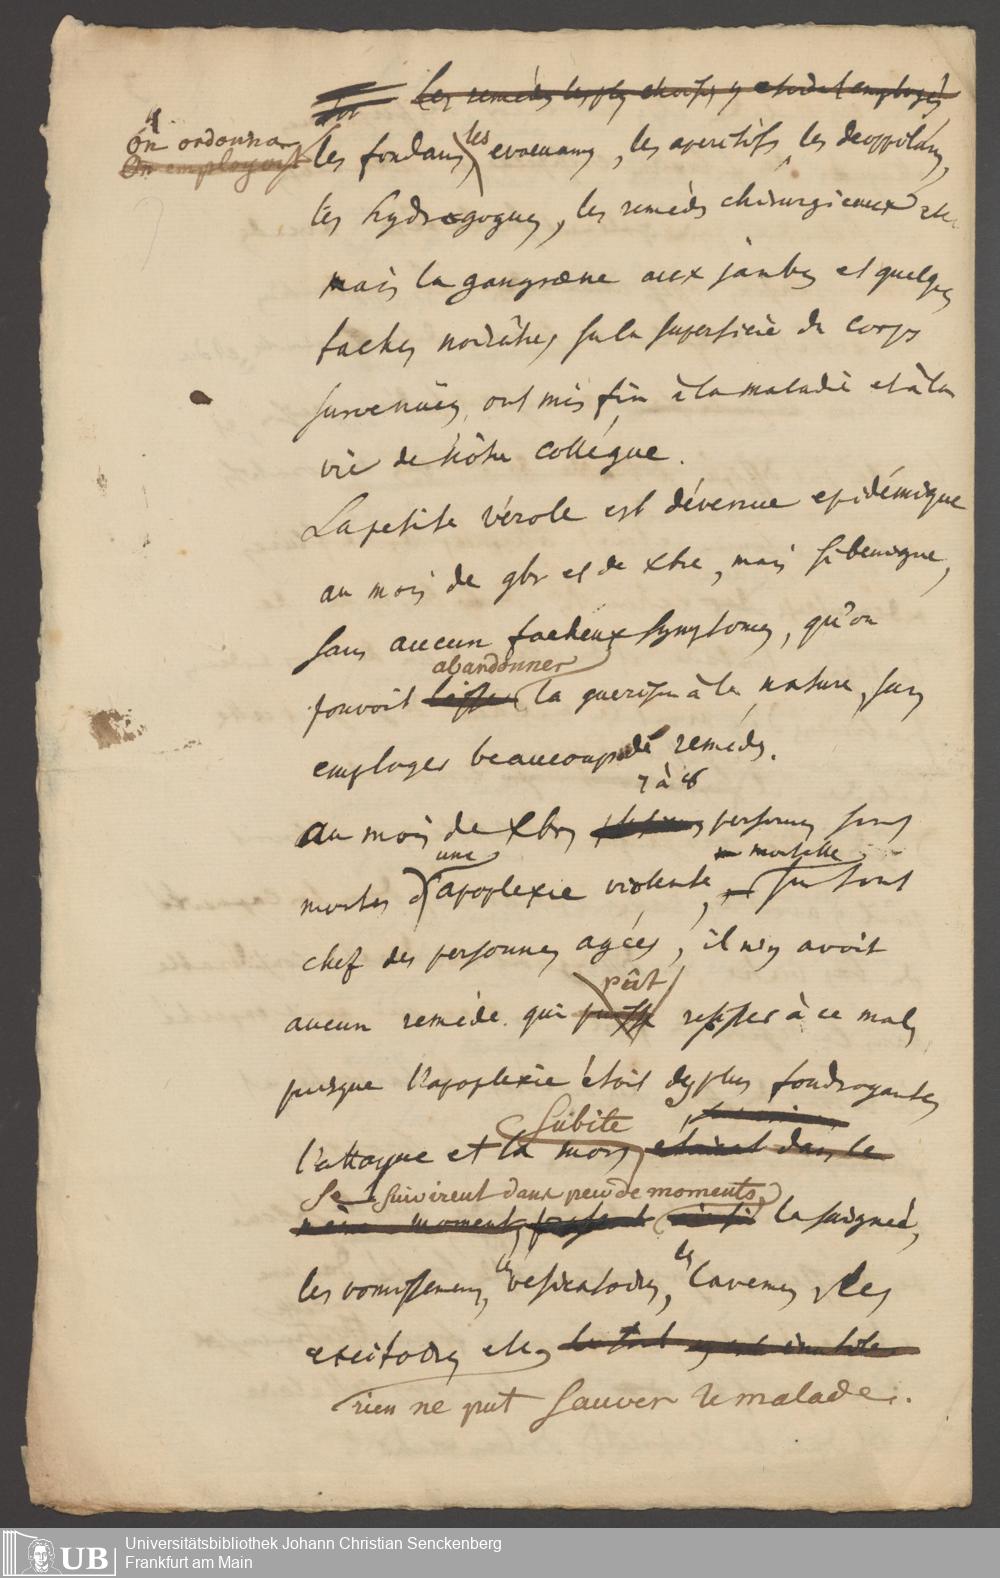 Les remedes les plus choisis y etoient employés
On ordonna
On employoit
les fondans, les evacuans, les aperitifs, les desoppilans,
les hydragogues, les remèdes chirurgicaux etc.
mais la gangræne aux jambes et quelques
taches noirâtres sur la superficie du corps
survenuës, ont mis fin à la maladie et à la
vie de nôtre collégue.
La petite vérole est dévenue epidémique
au mois de 9br et de Xbre, mais si benigne,
sans aucun facheux symptomes, qu'on
abandonner
pouvoit laisser la guerison à la nature, sans
employer beaucoup de remèdes.
7 à 8
au mois de Xbre personnes sont
une mortelle
mortes d'apoplexie violente, sur tout
chef des personnes agées, il n'y avoit
pût
aucun remède qui puisse resister à ce mal,
puisque l'apoplexie étoit des plus foudroyantes
subite
l'attaque et la mort étoient dans le
se suivirent dans peu de moments,
même moment, la saignée,
les vomissemens, les vesicatoires, les lavemens, les
excitoires etc,
rien ne put sauver le malade.
Universitätsbibliothek Johann Christian Senckenberg
Frankfurt am Main
UB